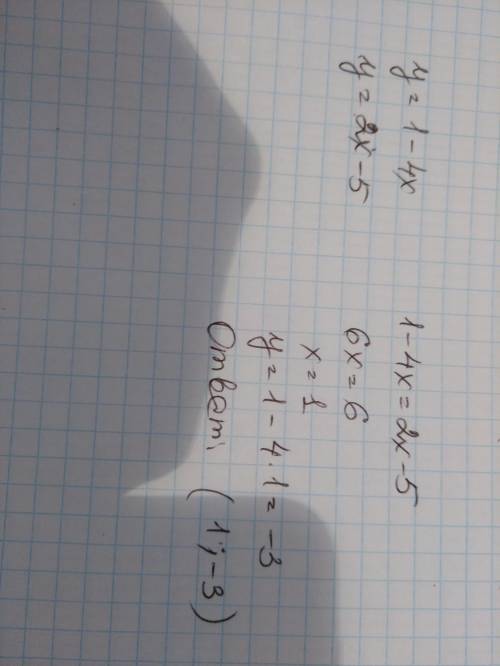 y = 1 - 4x
y = 2x - 5
1 - 4x = 2x - 5
6x = 6
x = 1
y = 1 - 4 · 1 = -3
Ответ: (1; -3)